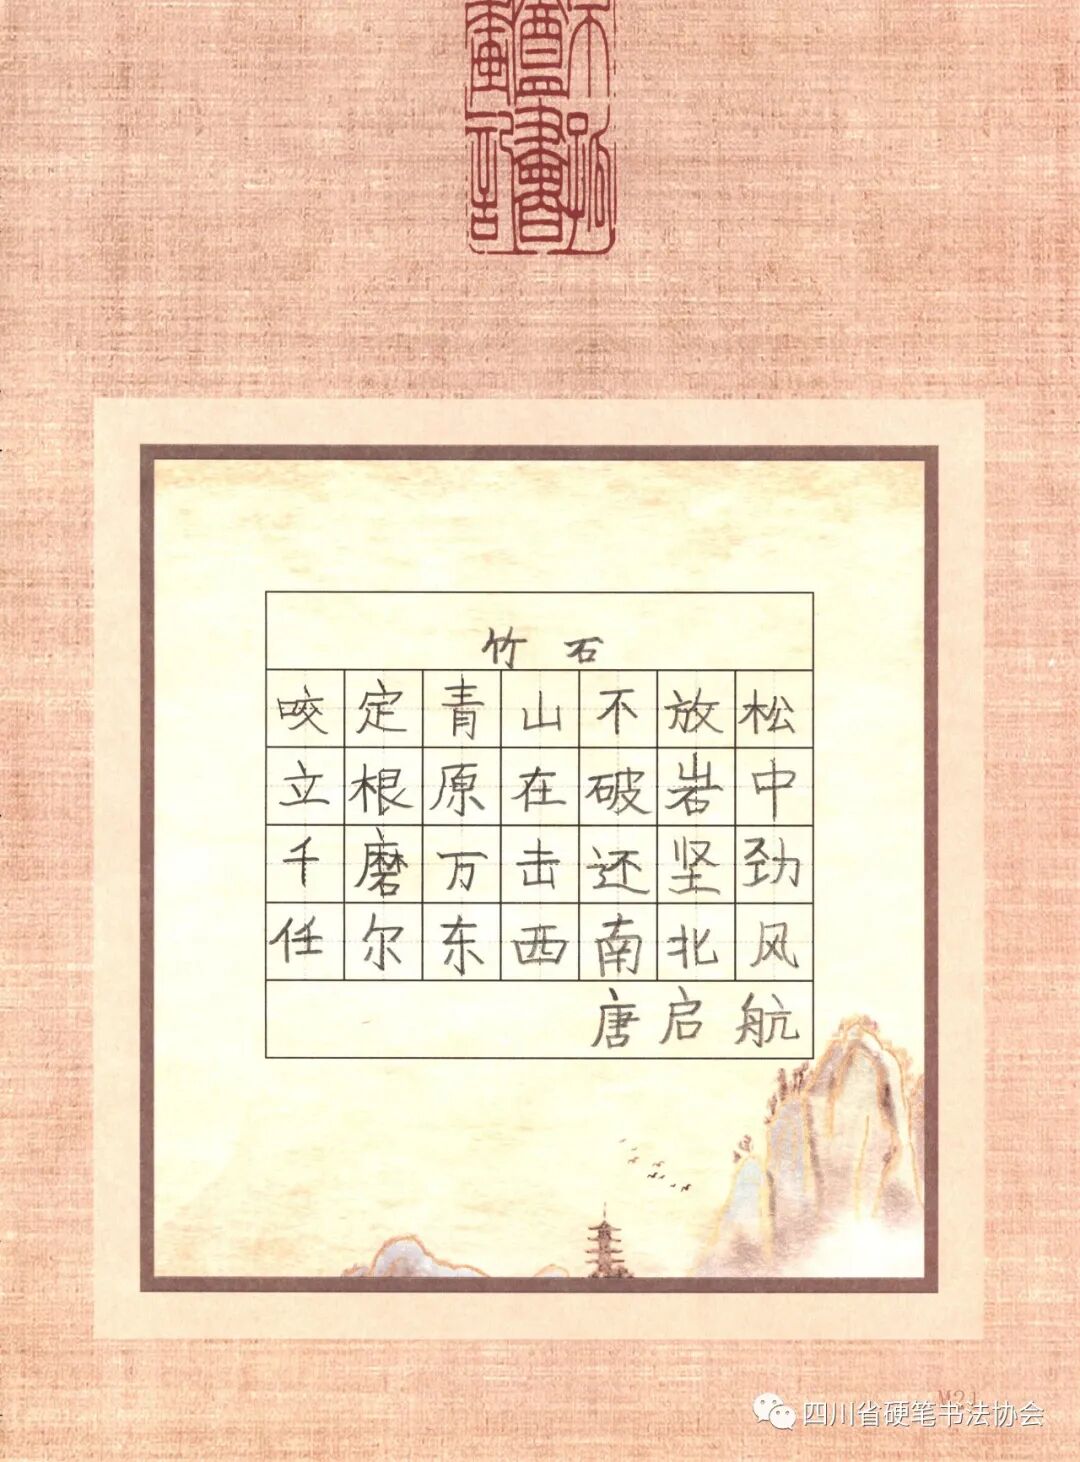 竹石
咬定青山不放松
立根原在破岩中
千磨万击还坚劲
任尔东西南北风
唐启航
M21
四川省硬笔书法协会